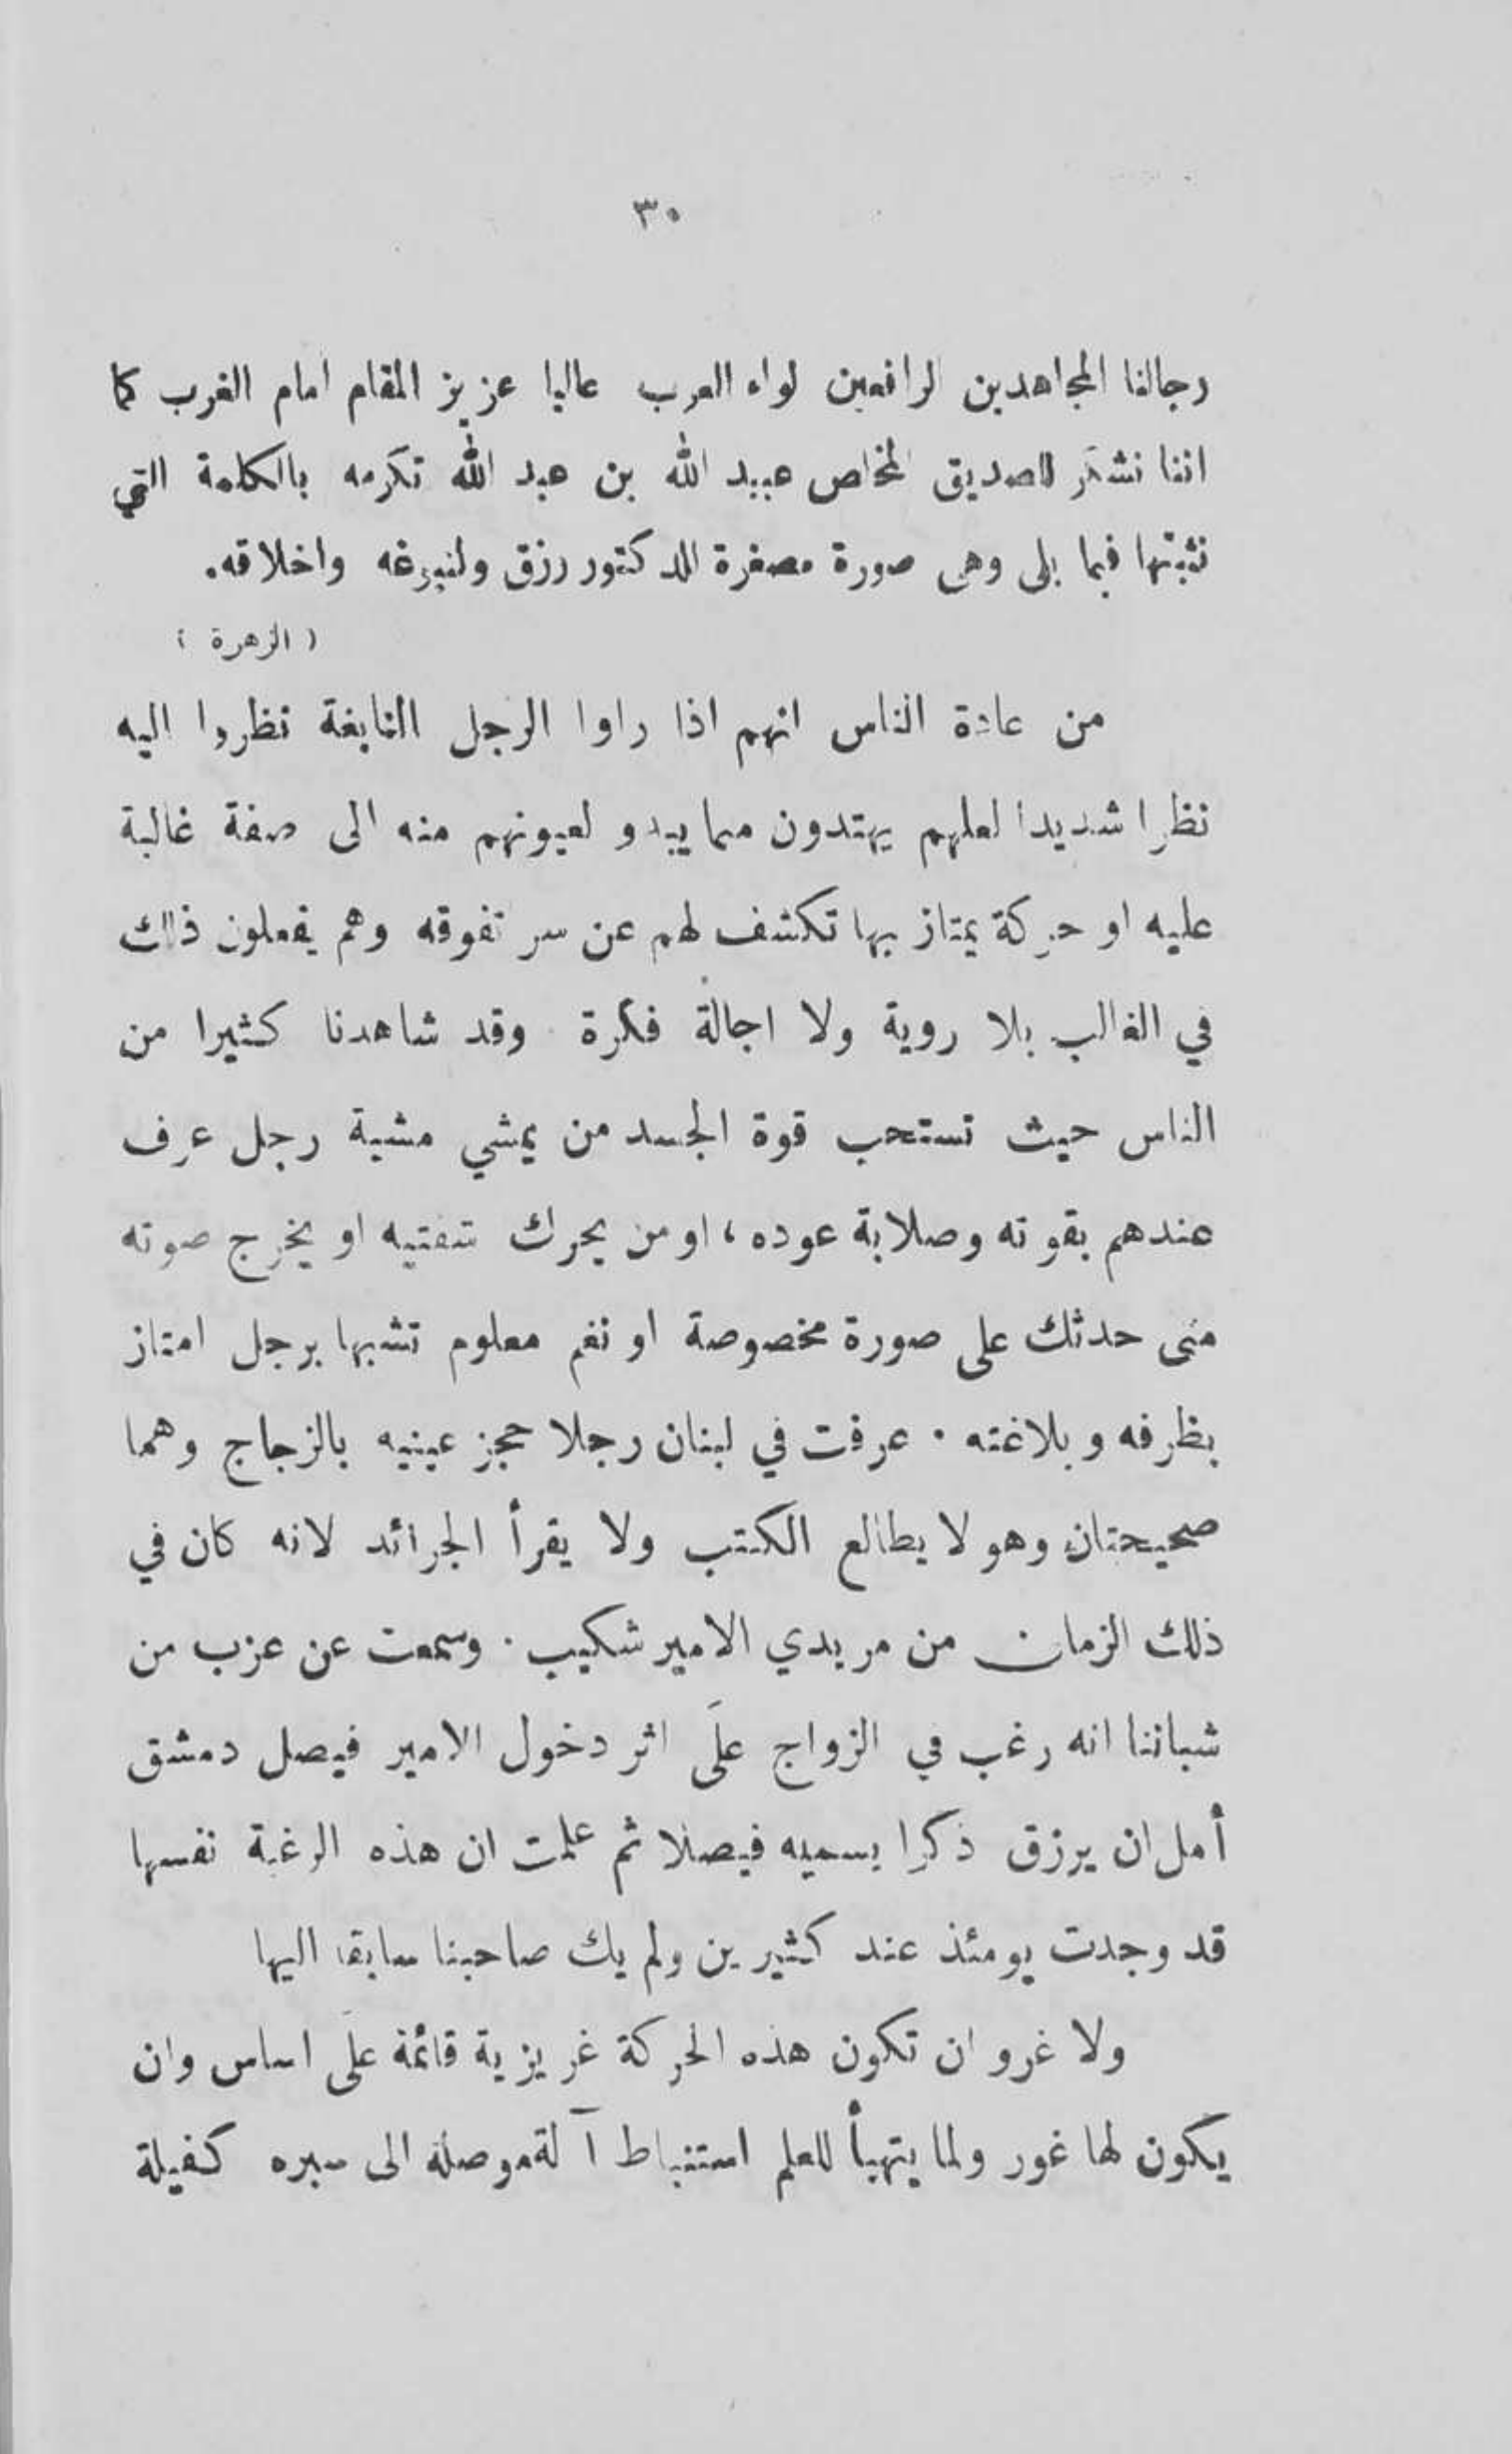 ٣٠
رجالنا المجاهدين الرافعين لواء العرب عاليا عزيز المقام امام الغرب كما
اننا نشكر للصديق المخلص عبيد الله بن عبد الله تكرمه بالكلمة التي
نثبتها فيما يلي وهي صورة مصغرة للدكتور رزق ولنبوغه واخلاقه.
( الزهرة )
من عادة الناس انهم اذا راوا الرجل النابغة نظروا اليه
نظرا شديدا لعلهم يهتدون مما يبدو لعيونهم منه الى صفة غالبة
عليه او حركة يمتاز بها تكشف لهم عن سر تفوقه وهم يفعلون ذلك
في الغالب بلا روية ولا اجالة فكرة . وقد شاهدنا كثيرا من
الناس حيث تستحب قوة الجسد من يمشي مشية رجل عرف
عندهم بقوته وصلابة عوده ، او من يحرك شفتيه او يخرج صوته
متى حدثك على صورة مخصوصة او نغم معلوم تشبها برجل امتاز
بظرفه وبلاغته . عرفت في لبنان رجلا حجز عينيه بالزجاج وهما
صحيحتان وهو لا يطالع الكتب ولا يقرأ الجرائد لانه كان في
ذلك الزمان من مريدي الامير شكيب . وسمعت عن عزب من
شباننا انه رغب في الزواج علَى اثر دخول الامير فيصل دمشق
أمل ان يرزق ذكرا يسميه فيصلا ثم علمت ان هذه الرغبة نفسها
قد وجدت يومئذ عند كثيرين ولم يك صاحبنا سابقا اليها
ولا غرو ان تكون هذه الحركة غريزية قائمة علَى اساس وان
يكون لها غور ولما يتهيأ للعلم استنباط آلة موصلة الى سبره كفيلة